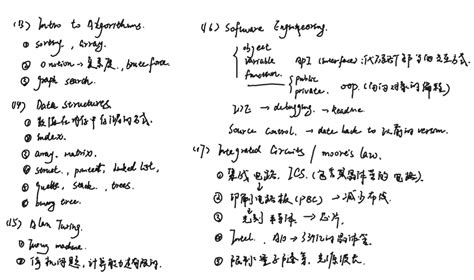 (13) Intro to Algorithms.
① sorting, array.
② O notion → 复杂度, brute force
③ graph search.
(14) Data structures
① 数据在内存中存储的方式.
② index.
③ array, matrix.
④ struct, pointer, linked list,
⑤ queue, stack, trees.
⑥ binary tree.
(15) Alan Turing.
① Turing machine
② 停机问题, 计算能力是有限的.
(16) Software Engineering.
object
variable API (interface):
function. public
private. oop. (面向对象的编程)
IDE → debugging. → Readme
Source control. → date back to 以前的 version.
(17) Integrated Circuits / moore's law.
① 集成电路, ICS. (包含晶体管的电路).
② 印刷电路板 (PBC) → 减少布线.
③ 光刻半导体 → 芯片.
④ Intel.
⑤ 限制: 量子隧穿, 光